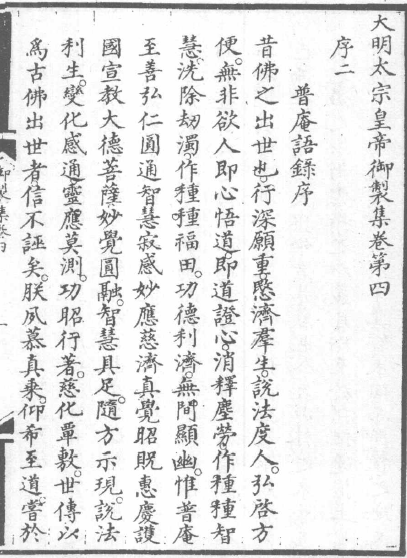 大明太宗皇帝御製集卷第四
序二
普庵語錄序
昔佛之出世也。行深願重。愍濟羣生。說法度人。弘啓方
便。無非欲人即心悟道。即道證心。消釋塵勞。作種種智
慧。洗除劫濁。作種種福田。功德利濟。無間顯幽。惟普庵
至善弘仁圓通智慧寂感妙應慈濟真覺昭貺惠慶護
國宣教大德菩薩妙覺圓融。智慧具足。隨方示現。說法
利生。變化感通。靈應莫測。功昭行著。慈化覃敷。世傳以
爲古佛出世者。信不誣矣。朕夙慕真乘。仰希至道。嘗於
御製集卷四
一